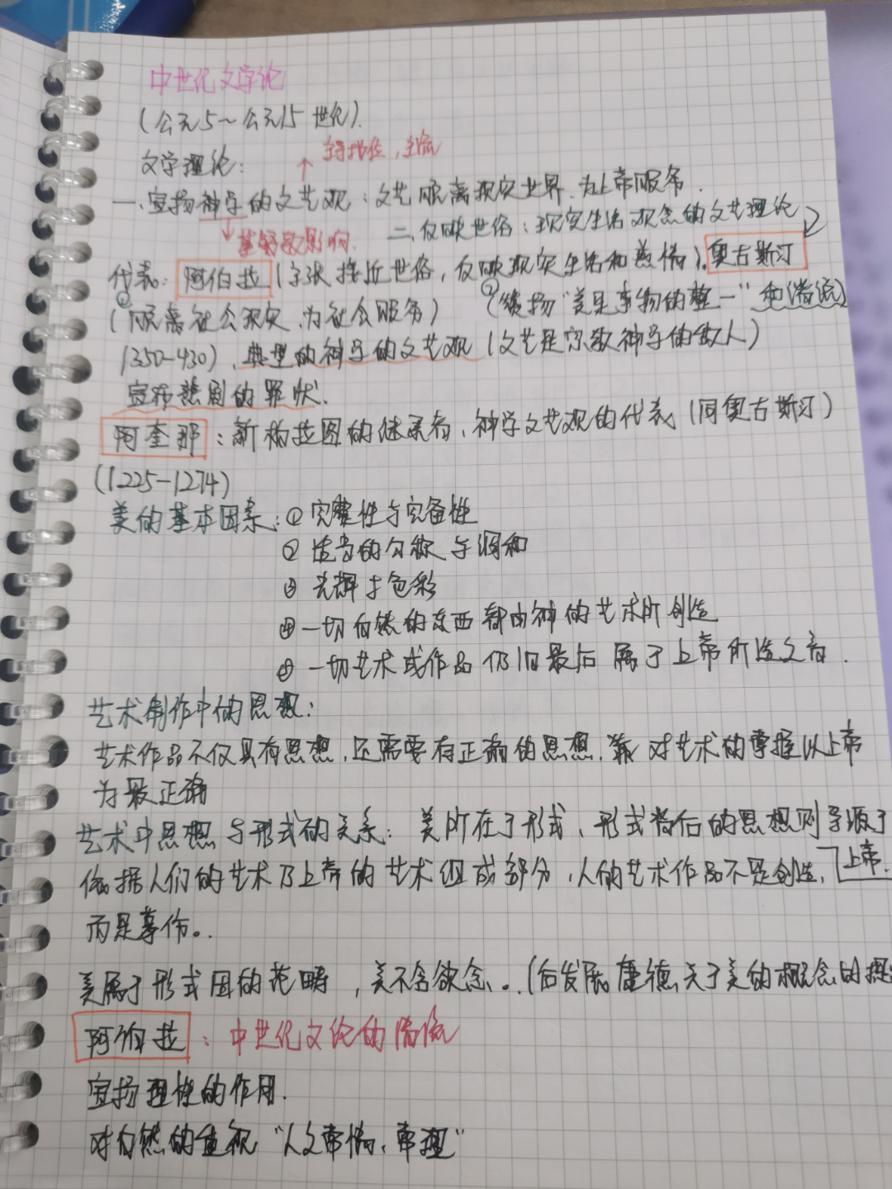 中世纪文学论
(公元5~公元15世纪).
文学理论: ↑ 主流
一、宣扬神学的文艺观:文艺脱离现实世界.为上帝服务.
↓基督教影响. 二、反映世俗:现实生活观念的文艺理论
代表:阿伯拉(主张接近世俗,反映现实生活和感情).奥古斯汀
①(脱离社会现实,为社会服务) ②(宣扬"美是事物的整一"和谐
(350-430),典型的神学的文艺观(文艺是宗教神学的敌人)
宣布悲剧的罪状.
阿奎那:新柏拉图的继承者,神学文艺观的代表(同奥古斯汀)
(1225-1274)
美的基本因素:①完整性与完备性
②适当的匀称与调和
③光辉与色彩
④一切自然的东西都由神的艺术所创造
⑤一切艺术或作品仍旧最后属于上帝所造之音.
艺术制作中的思想:
艺术作品不仅具有思想,还需要有正确的思想,对艺术的掌握以上帝
为最正确
艺术中思想与形式的关系:美所在于形式,形式背后的思想则导源于
上帝.
依据人们的艺术乃上帝的艺术组成部分,人的艺术作品不是创造,
而是摹仿。.
美属于形式因的范畴,美不含欲念。.(后发展康德关于美的概念的提
阿伯拉:中世纪文论的潜流
宣扬理性的作用.
对自然的重视"人文常情,常理"